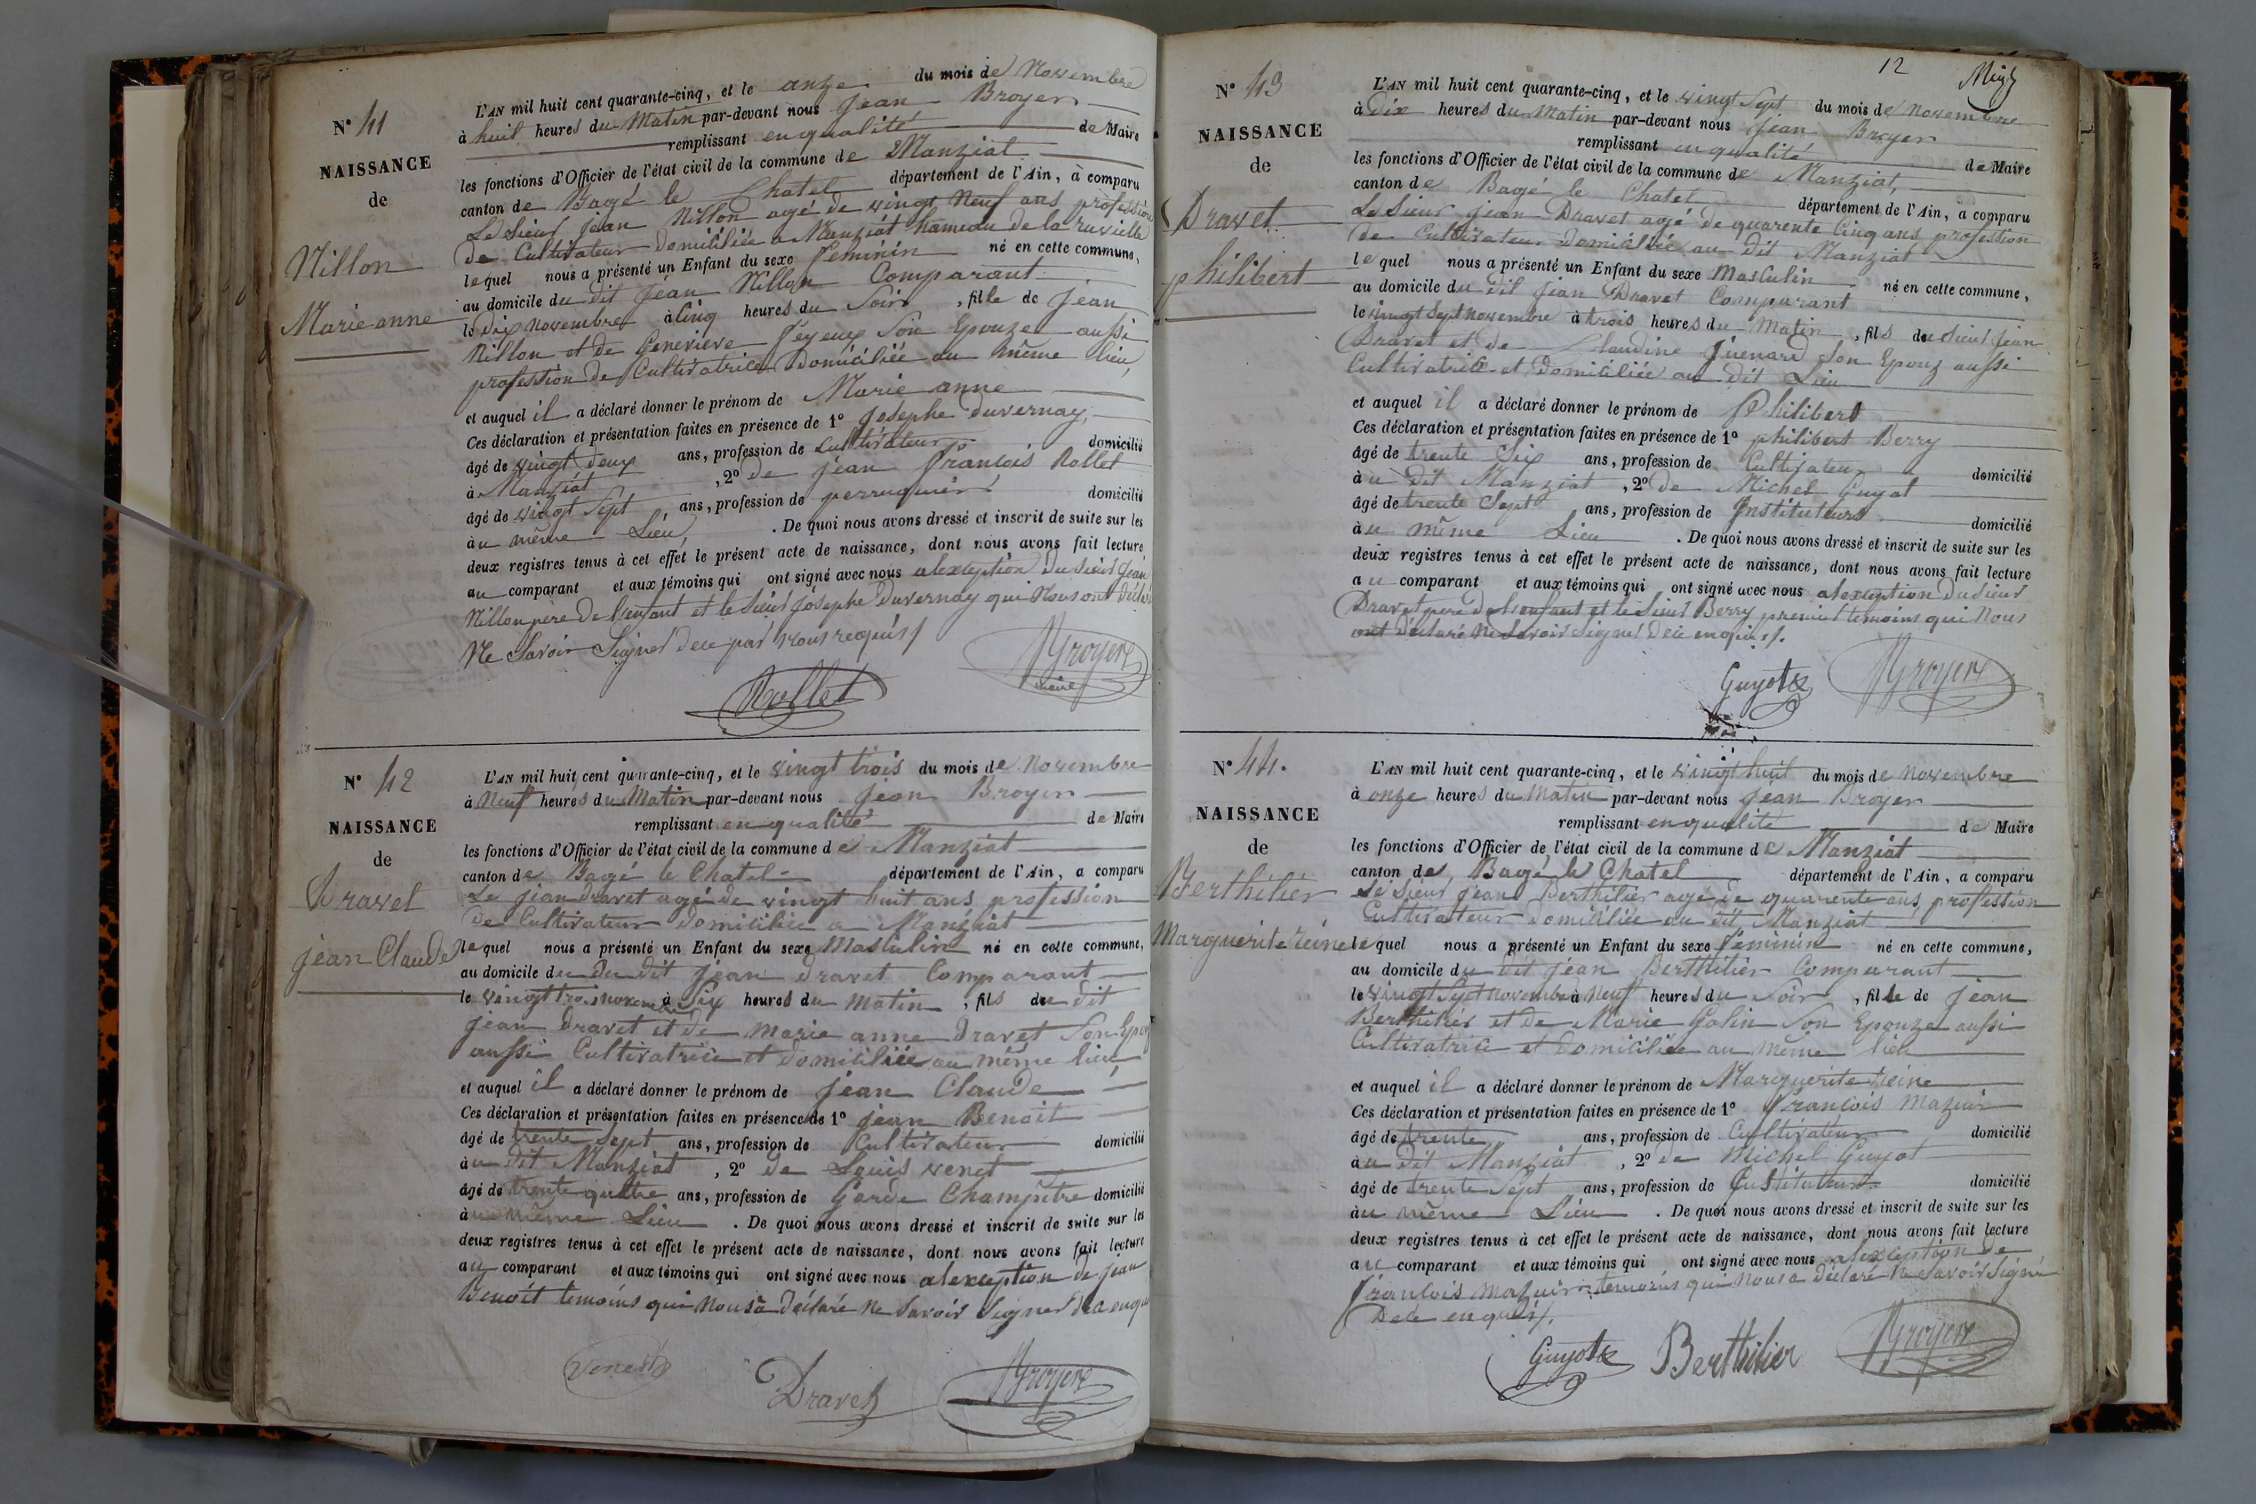 N° 41
NAISSANCE
de
Nillon
Marie anne
L'AN mil huit cent quarante-cinq, et le onze du mois de Novembre
à huit heures du Matin par-devant nous Jean Broyer
remplissant en qualité de Maire
les fonctions d'Officier de l'état civil de la commune de Manziat
canton de Bagé le Chatel département de l'Ain, à comparu
Le Sieur Jean Nillon agé de vingt Neuf ans profession
de Cultivateur domiciliée a Manziat hameau de la
lequel nous a présenté un Enfant du sexe feminin né en cette commune,
au domicile du dit Jean Nillon Comparant
le dix novembre à Cinq heures du Soir, fille de Jean
Nillon et de Genevieve Feyeux Son Epouze aussi
profession de Cultivatrice domiciliée au même lieu,
et auquel il a déclaré donner le prénom de Marie anne
Ces déclaration et présentation faites en présence de 1° Josephe Duvernay,
âgé de vingt deux ans, profession de Cultivateur domicilié
à Manziat, 2° de jean François Rollet
âgé de vingt Sept ans, profession de perruquier domicilié
au même Lieu, . De quoi nous avons dressé et inscrit de suite sur les
deux registres tenus à cet effet le présent acte de naissance, dont nous avons fait lecture
au comparant et aux témoins qui ont signé avec nous alexception du Sieur Jean
Nillon pere de l'enfant et le Sieur Josephe Duvernay qui Nous ont déclaré
Ne Savoir Signer de ce par Nous requis /
Rollet
Broyer
maire
N° 42
NAISSANCE
de
Dravet
jean Claude
L'AN mil huit cent quarante-cinq, et le vingt trois du mois de Novembre
à Neuf heures du Matin par-devant nous Jean Broyer
remplissant en qualité de Maire
les fonctions d'Officier de l'état civil de la commune de Manziat
canton de Bagé le Chatel département de l'Ain, a comparu
Le Jean Dravet agé de vingt huit ans profession
de Cultivateur domiciliée a Manziat
lequel nous a présenté un Enfant du sexe Masculin né en cette commune,
au domicile du du dit Jean Dravet Comparant
le vingt trois novembre à Six heures du matin, fils du dit
Jean Dravet et de marie anne Dravet Son Epouz
aussi Cultivatrice et domiciliée au même lieu
et auquel il a déclaré donner le prénom de Jean Claude
Ces déclaration et présentation faites en présence de 1° Jean Benoit
âgé de trente Sept ans, profession de Cultivateur domicilié
àu dit Manziat, 2° de Louis vengt
âgé de trente quatre ans, profession de Garde Champêtre domicilié
àu même Lieu . De quoi nous avons dressé et inscrit de suite sur les
deux registres tenus à cet effet le présent acte de naissance, dont nous avons fait lecture
au comparant et aux témoins qui ont signé avec nous alexception de Jean
Benoit temoins qui Nous a déclaré Ne Savoir Signer
Dravet
Broyer
12
N° 43
NAISSANCE
de
Dravet
philibert
L'AN mil huit cent quarante-cinq, et le vingt Sept du mois de Novembre
à dix heures du Matin par-devant nous Jean Broyer
remplissant en qualité de Maire
les fonctions d'Officier de l'état civil de la commune de Manziat,
canton de Bagé le Chatel département de l'Ain, a comparu
Le Sieur Jean Dravet agé de quarente Cinq ans profession
de Cultivateur domiciliée au dit Manziat
lequel nous a présenté un Enfant du sexe Masculin né en cette commune,
au domicile du dit Jean Dravet Comparant
le vingt Sept novembre à trois heures du Matin, fils du Sieur Jean
Dravet et de Claudine Guenard Son Epouz aussi
Cultivatrice et domiciliée au dit Lieu
et auquel il a déclaré donner le prénom de Philibert
Ces déclaration et présentation faites en présence de 1° philibert Berry
âgé de trente Six ans, profession de Cultivateur domicilié
àu dit Manziat, 2° de Michel Guyot
âgé de trente Sept ans, profession de Instituteur domicilié
àu même Lieu . De quoi nous avons dressé et inscrit de suite sur les
deux registres tenus à cet effet le présent acte de naissance, dont nous avons fait lecture
au comparant et aux témoins qui ont signé avec nous alexception du Sieur
Dravet pere de l'enfant et le Sieur Berry premier temoins qui Nous
ont déclaré Ne Savoir Signer de ce enquis /.
Guyot
Broyer
N° 44.
NAISSANCE
de
Berthilier
Marguerite reine
L'AN mil huit cent quarante-cinq, et le vingt huit du mois de Novembre
à onze heures du Matin par-devant nous Jean Broyer
remplissant en qualité de Maire
les fonctions d'Officier de l'état civil de la commune de Manziat
canton de Bagé le Chatel département de l'Ain, a comparu
Le Sieur Jean Berthilier agé de quarente ans profession
Cultivateur domiciliée au dit Manziat
lequel nous a présenté un Enfant du sexe féminin né en cette commune,
au domicile du dit Jean Berthilier Comparant
le vingt Sept novembre à Neuf heures du Soir, fille de Jean
Berthilier et de Marie Galin Son Epouze aussi
Cultivatrice et domiciliée au même lieu
et auquel il a déclaré donner le prénom de Marguerite reine
Ces déclaration et présentation faites en présence de 1° François Mazuir
âgé de trente ans, profession de Cultivateur domicilié
àu dit Manziat, 2° de Michel Guyot
âgé de trente Sept ans, profession de Instituteur domicilié
àu même Lieu . De quoi nous avons dressé et inscrit de suite sur les
deux registres tenus à cet effet le présent acte de naissance, dont nous avons fait lecture
au comparant et aux témoins qui ont signé avec nous alexception de
François Mazuir temoins qui Nous a déclaré Ne Savoir Signé
De ce enquis /.
Guyot
Berthilier
Broyer